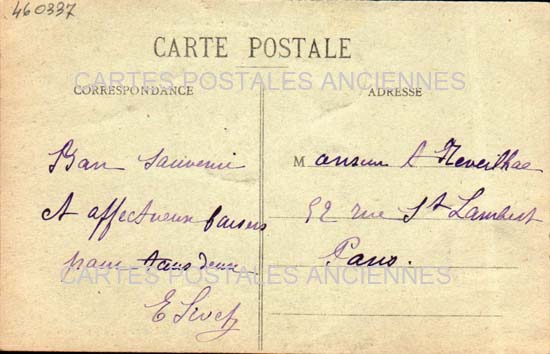 460337
CARTE POSTALE
CARTES POSTALES ANCIENNES
CORRESPONDANCE
ADRESSE
Bon souvenir
et affectueux baisers
pour tous deux
Monsieur
52 rue St Lambert
Paris.
CARTES POSTALES ANCIENNES